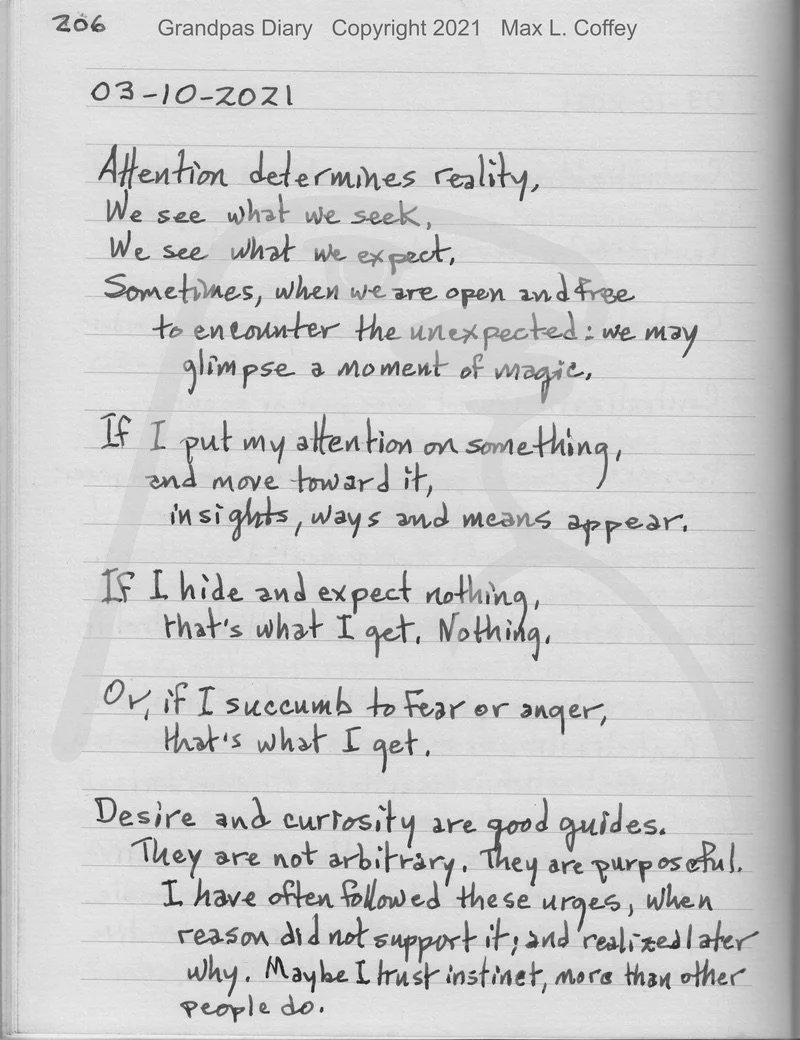 206
Grandpas Diary Copyright 2021 Max L. Coffey
03-10-2021
Attention determines reality,
We see what we seek,
We see what we expect,
Sometimes, when we are open and free
to encounter the unexpected: we may
glimpse a moment of magic.
If I put my attention on something,
and move toward it,
insights, ways and means appear.
If I hide and expect nothing,
that's what I get. Nothing.
Or, if I succumb to fear or anger,
that's what I get.
Desire and curiosity are good guides.
They are not arbitrary. They are purposeful.
I have often followed these urges, when
reason did not support it; and realized later
why. Maybe I trust instinct, more than other
people do.